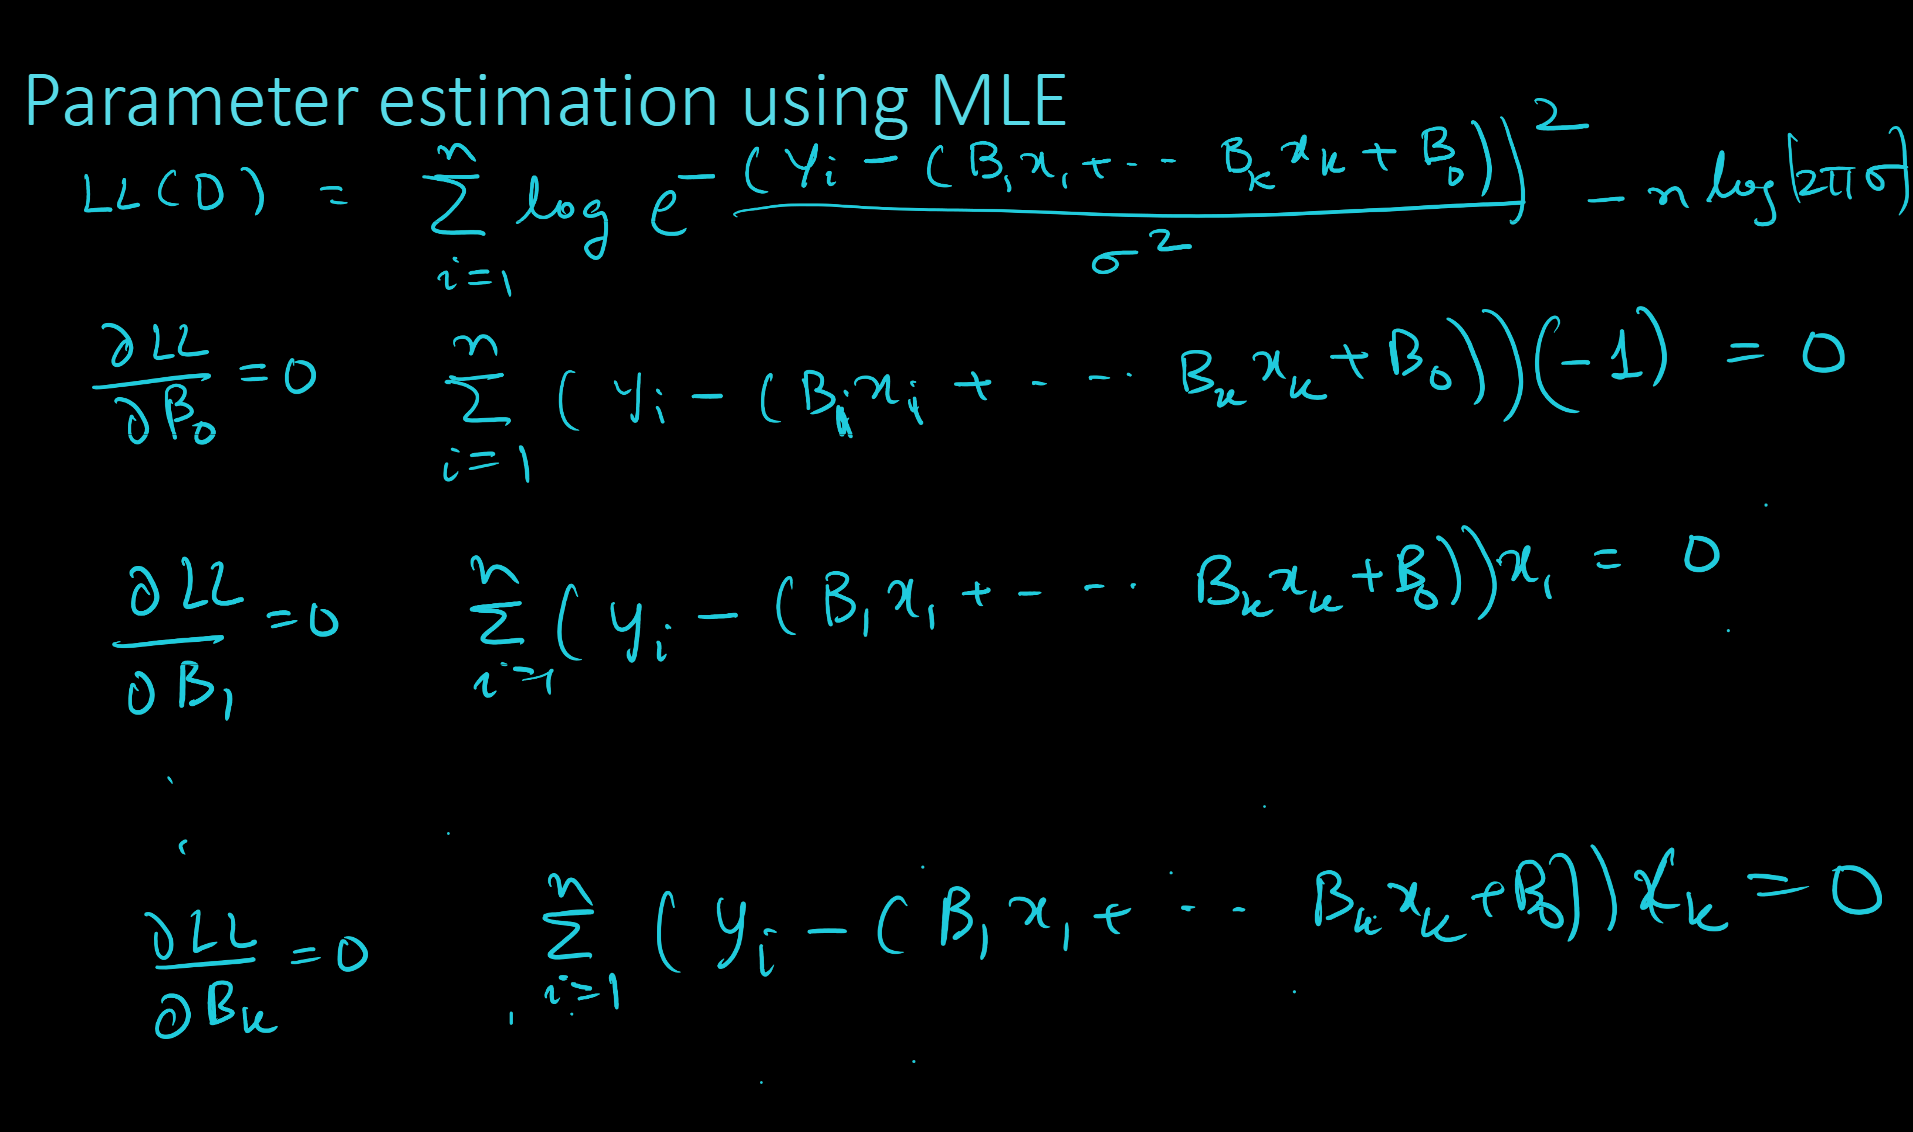 Parameter estimation using MLE
LL(D) = Σ_{i=1}^{n} log e^{-(y_i - (B_1 x_1 + ... B_k x_k + B_0))^2 / σ^2} - n log(2πσ)
∂LL/∂B_0 = 0 Σ_{i=1}^{n} (y_i - (B_1 x_1 + ... B_k x_k + B_0))(-1) = 0
∂LL/∂B_1 = 0 Σ_{i=1}^{n} (y_i - (B_1 x_1 + ... B_k x_k + B_0)) x_1 = 0
.
.
∂LL/∂B_k = 0 Σ_{i=1}^{n} (y_i - (B_1 x_1 + ... B_k x_k + B_0)) x_k = 0